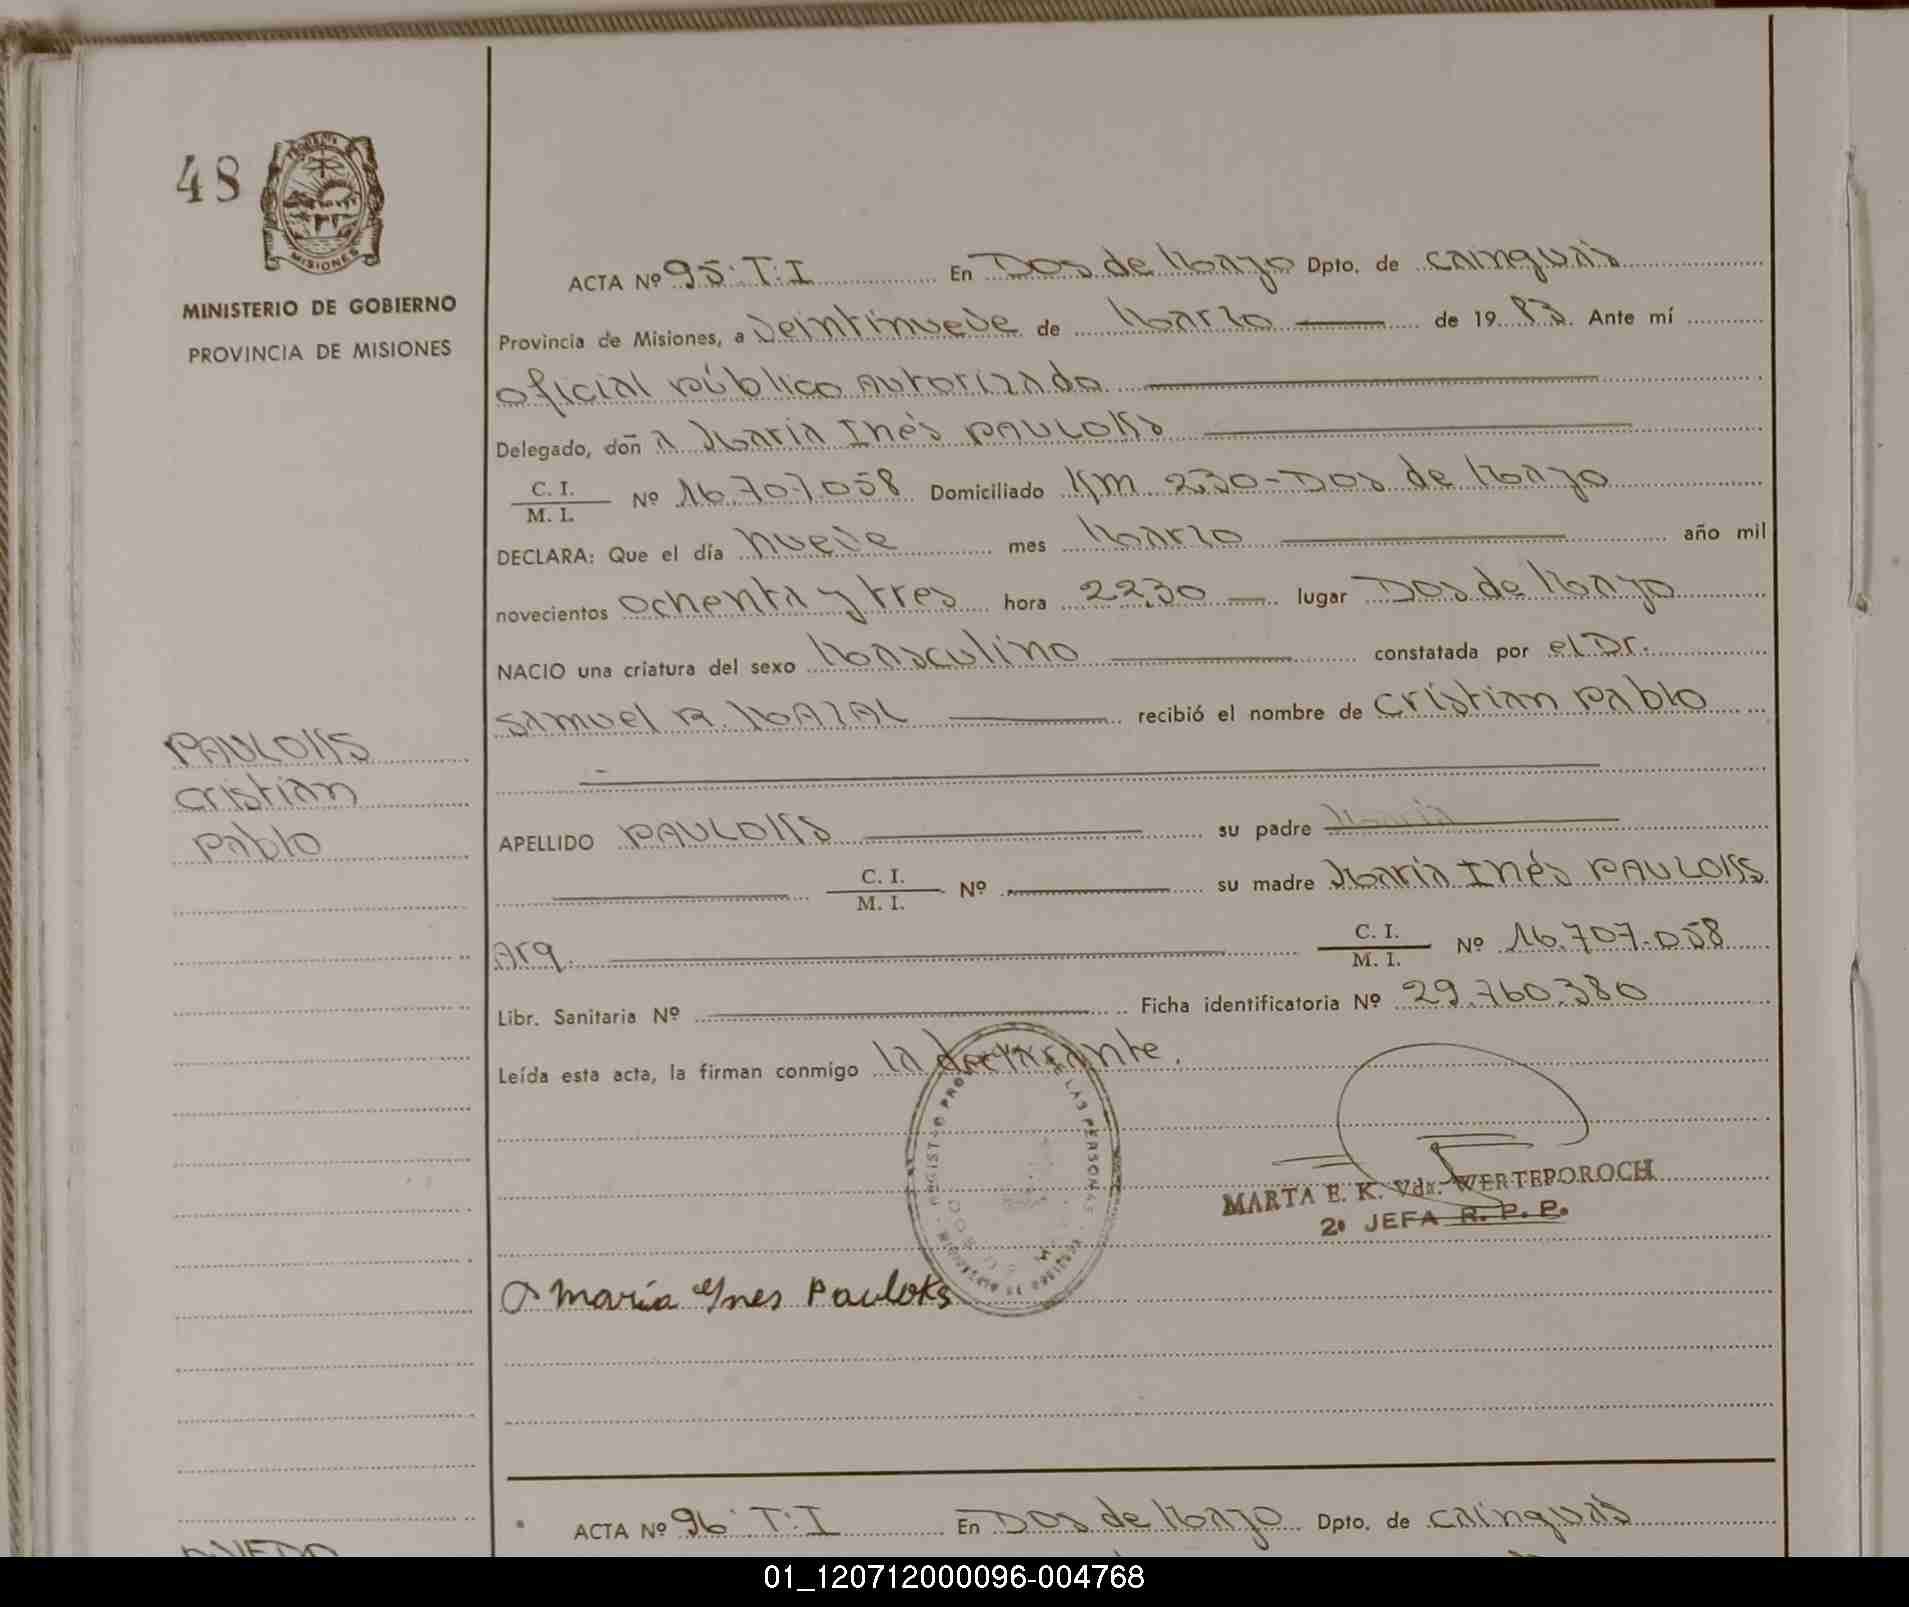 48
MISIONES
MINISTERIO DE GOBIERNO
PROVINCIA DE MISIONES
ACTA Nº 95. T: I En Dos de Mayo Dpto. de Cainguás
Provincia de Misiones, a Veintinueve de Marzo de 19 83. Ante mí
Oficial público Autorizado
Delegado, don a María Inés PAULOKS
C. I. / M. I. Nº 16.707.058 Domiciliado Km 230 - Dos de Mayo
DECLARA: Que el día nueve mes Marzo año mil
novecientos ochenta y tres hora 22,30 lugar Dos de Mayo
NACIO una criatura del sexo Masculino constatada por el Dr.
Samuel R. MAZAL recibió el nombre de Cristian Pablo
PAULOKS
Cristian
Pablo
APELLIDO PAULOKS su padre
C. I. / M. I. Nº su madre María Inés PAULOKS
Arg. C. I. / M. I. Nº 16.707.058
Libr. Sanitaria Nº Ficha identificatoria Nº 29.760.380
Leída esta acta, la firman conmigo la declarante.
LAS PERSONAS
MARTA E. K. Vda. WERTEPOROCH
2º JEFA R. P. P.
María Ynes Pauloks
ACTA Nº 96. T: I En Dos de Mayo Dpto. de Cainguás
01_120712000096-004768